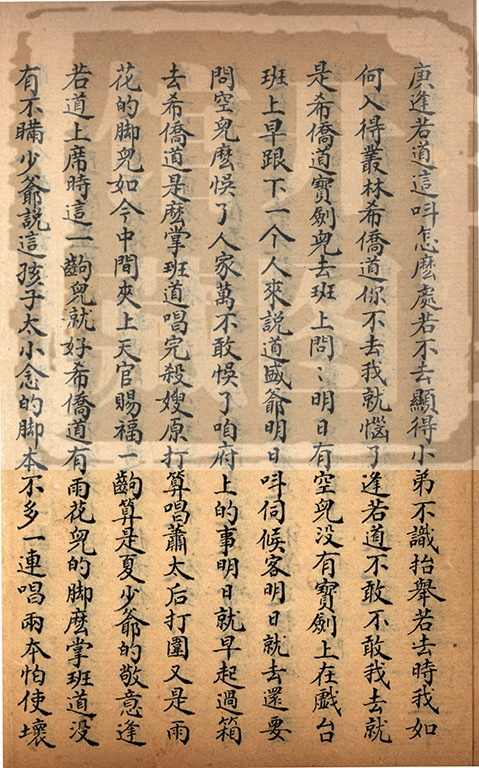 庚逢若道這叫怎麽處若不去顯得小弟不識抬舉若去時我如
何入得叢林希僑道你不去我就惱了逢若道不敢不敢我去就
是希僑道寶劍兒去班上問〻明日有空兒没有寶劍上在戲台
班上早跟下一个人來説道盛爺明日叫伺候客明日就去還要
問空兒麽悞了人家萬不敢悞了咱府上的事明日就早起過箱
去希僑道是麽掌班道唱完殺嫂原打算唱蕭太后打圍又是雨
花的脚兒如今中間夾上天官賜福一齣算是夏少爺的敬意逢
若道上席時這一齣兒就好希僑道有雨花兒的脚麽掌班道没
有不瞞少爺説這孩子太小念的脚本不多一連唱兩本怕使壞